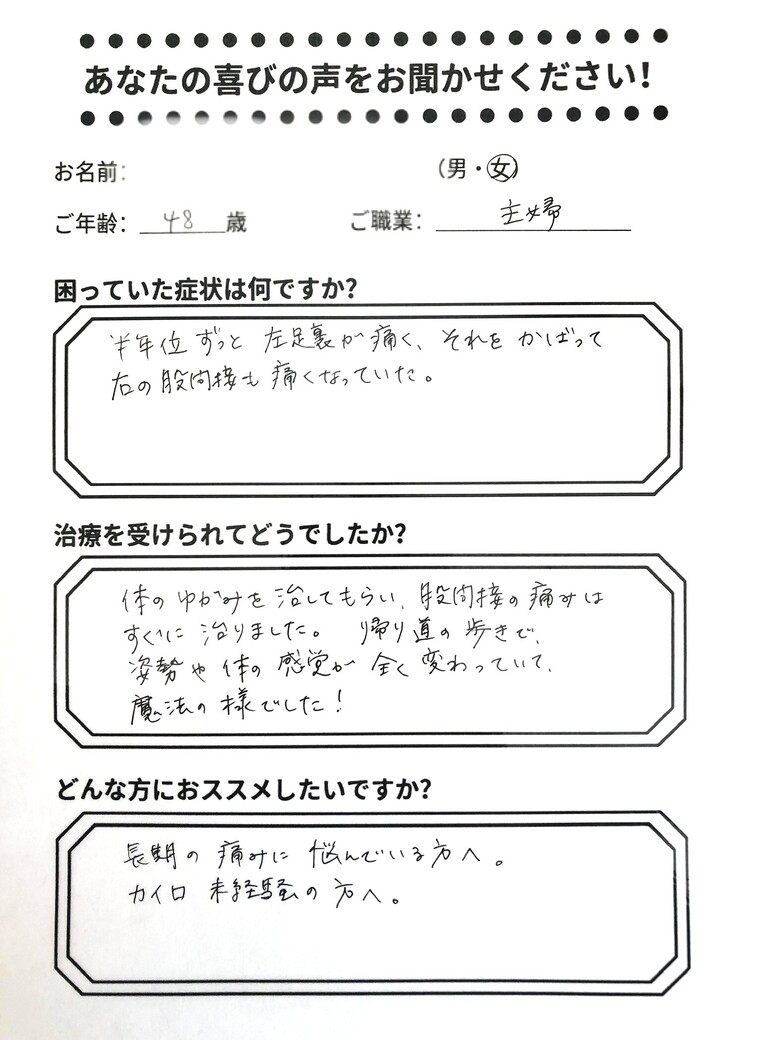 あなたの喜びの声をお聞かせください!
お名前:
(男・女)
ご年齢: 48 歳
ご職業: 主婦
困っていた症状は何ですか?
半年位 ずっと 左足裏が痛く、それを かばって
右の股間接も 痛くなっていた。
治療を受けられてどうでしたか?
体の ゆがみを 治してもらい、股間接の痛みは
すぐに 治りました。 帰り道の 歩きで、
姿勢や 体の 感覚が 全く 変わっていて、
魔法の 様でした!
どんな方におススメしたいですか?
長期の 痛みに 悩んでいる方へ。
カイロ 未経騒の 方へ。